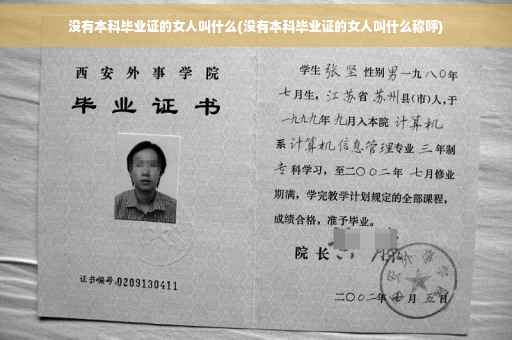 没有本科毕业证的女人叫什么(没有本科毕业证的女人叫什么称呼)
西安外事学院
毕业证书
证书编号:0209130411
学生 张坚 性别男 一九八〇年
七月生，江苏省 苏州县(市)人，于
一九九九年 九月入本院 计算机
系 计算机信息管理专业 三 年制
专 科学习，至二〇〇二年 七月修业
期满，学完教学计划规定的全部课程，
成绩合格，准予毕业。
院长
二〇〇二年 七 月 五 日